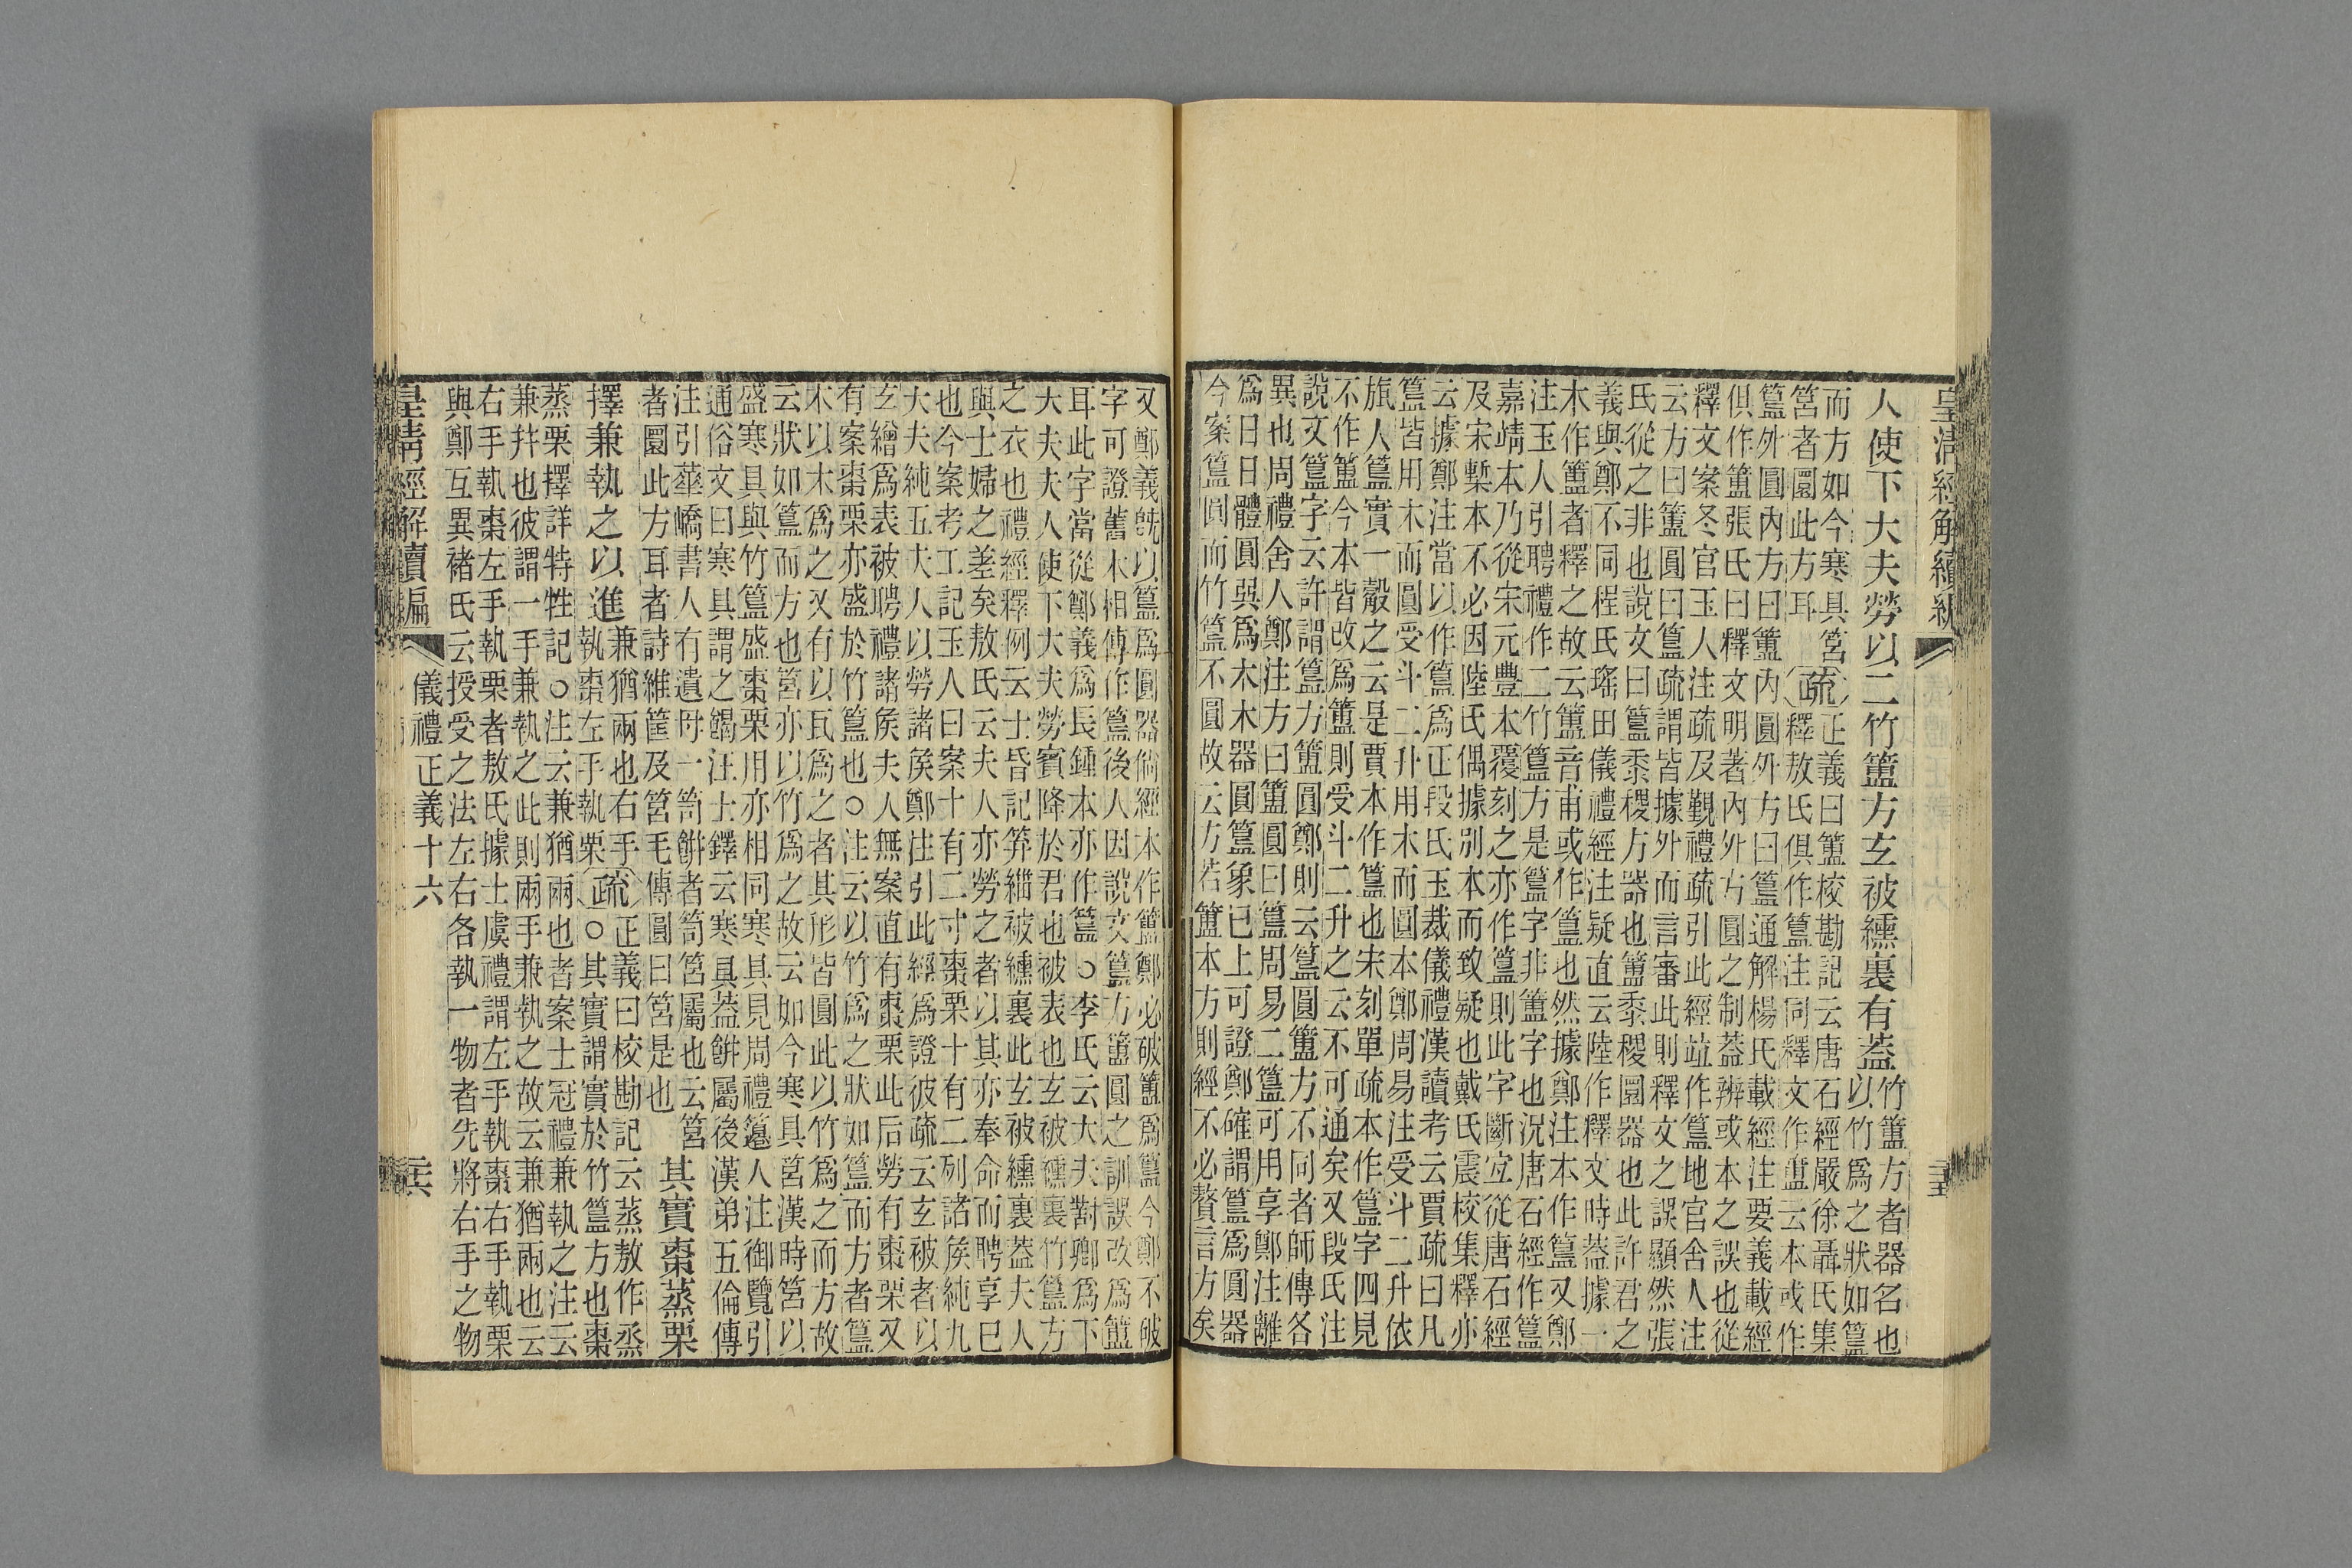 皇清經解續編
人使下大夫勞以二竹簠方玄被纁裏有葢
竹簠方者器名也
以竹爲之狀如簋
而方如今寒具筥
筥者圜此方耳
疏
正義曰簠校勘記云唐石經嚴徐聶氏集
釋敖氏俱作簋注同釋文作簠云本或作
簋外圓內方曰簠內圓外方曰簋通解楊氏載經注要義載經
俱作簠張氏曰釋文明著內外方圓之制葢辨或本之誤也從
釋文案冬官玉人注疏及覲禮疏引此經竝作簋地官舍人注
云方曰簠圓曰簋疏謂皆據外而言審此則釋文之誤顯然張
氏從之非也說文曰簋黍稷方器也簠黍稷圜器也此許君之
義與鄭不同程氏瑤田儀禮經注疑直云陸作釋文時葢據一
木作簠者釋之故云簠音甫或作簋也然據鄭注本作簋又鄭
注玉人引聘禮作二竹簋方是簋字非簠字也況唐石經作簋
嘉靖本乃從宋元豐本覆刻之亦作簋則此字斷宜從唐石經
及宋槧本不必因陸氏偶據別本而致疑也戴氏震校集釋亦
云據鄭注當以作簋爲正段氏玉裁儀禮漢讀考云賈疏曰凡
簋皆用木而圓受斗二升用木而圓本鄭周易注受斗二升依
旊人簋實一觳之云是賈本作簋也宋刻單疏本作簋字四見
不作簠今本皆改爲簠則受斗二升之云不可通矣又段氏注
說文簋字云許謂簋方簠圓鄭則云簋圓簠方不同者師傳各
異也周禮舍人鄭注方曰簠圓曰簋周易二簋可用享鄭注離
爲日日體圓巽爲木木器圓簋象已上可證鄭確謂簋爲圓器
今案簋圓而竹簋不圓故云方若簠本方則經不必贅言方矣
又鄭義旣以簋爲圓器倘經本作簠鄭必破簠爲簋今鄭不破
字可證舊本相傳作簋後人因說文簋方簠圓之訓誤改爲簠
耳此字當從鄭義爲長鍾本亦作簋○李氏云大夫對卿爲下
大夫夫人使下大夫勞賓降於君也被表也玄被纁裏竹簋方
之衣也禮經釋例云士昏記笲緇被纁裏此玄被纁裏葢夫人
與士婦之差矣敖氏云夫人亦勞之者以其亦奉命而聘享巳
也今案考工記玉人曰案十有二寸棗栗十有二列諸矦純九
大夫純五夫人以勞諸矦鄭注引此經爲證彼疏云玄被者以
玄繒爲表被聘禮諸矦夫人無案直有棗栗此后勞有棗栗又
有案棗栗亦盛於竹簋也○注云以竹爲之狀如簋而方者簋
木以木爲之又有以瓦爲之者其形皆圓此以竹爲之而方故
云狀如簋而方也筥亦以竹爲之故云如今寒具筥漢時筥以
盛寒具與竹簋盛棗栗用亦相同寒具見周禮籩人注御覽引
通俗文曰寒具謂之餲汪士鐸云寒具葢餅屬後漢弟五倫傳
注引華嶠書人有遺母一笥餅者笥筥屬也云筥
者圜此方耳者詩維筐及筥毛傳圓曰筥是也
其實棗蒸栗
擇兼執之以進
兼猶兩也右手
執棗左手執栗
疏
正義曰校勘記云蒸敖作烝
○其實謂實於竹簋方也棗
蒸栗擇詳特牲記○注云兼猶兩也者案士冠禮兼執之注云
兼幷也彼謂一手兼執之此則兩手兼執之故云兼猶兩也云
右手執棗左手執栗者敖氏據士虞禮謂左手執棗右手執栗
與鄭互異褚氏云授受之法左右各執一物者先將右手之物
皇清經解續編
儀禮正義十六